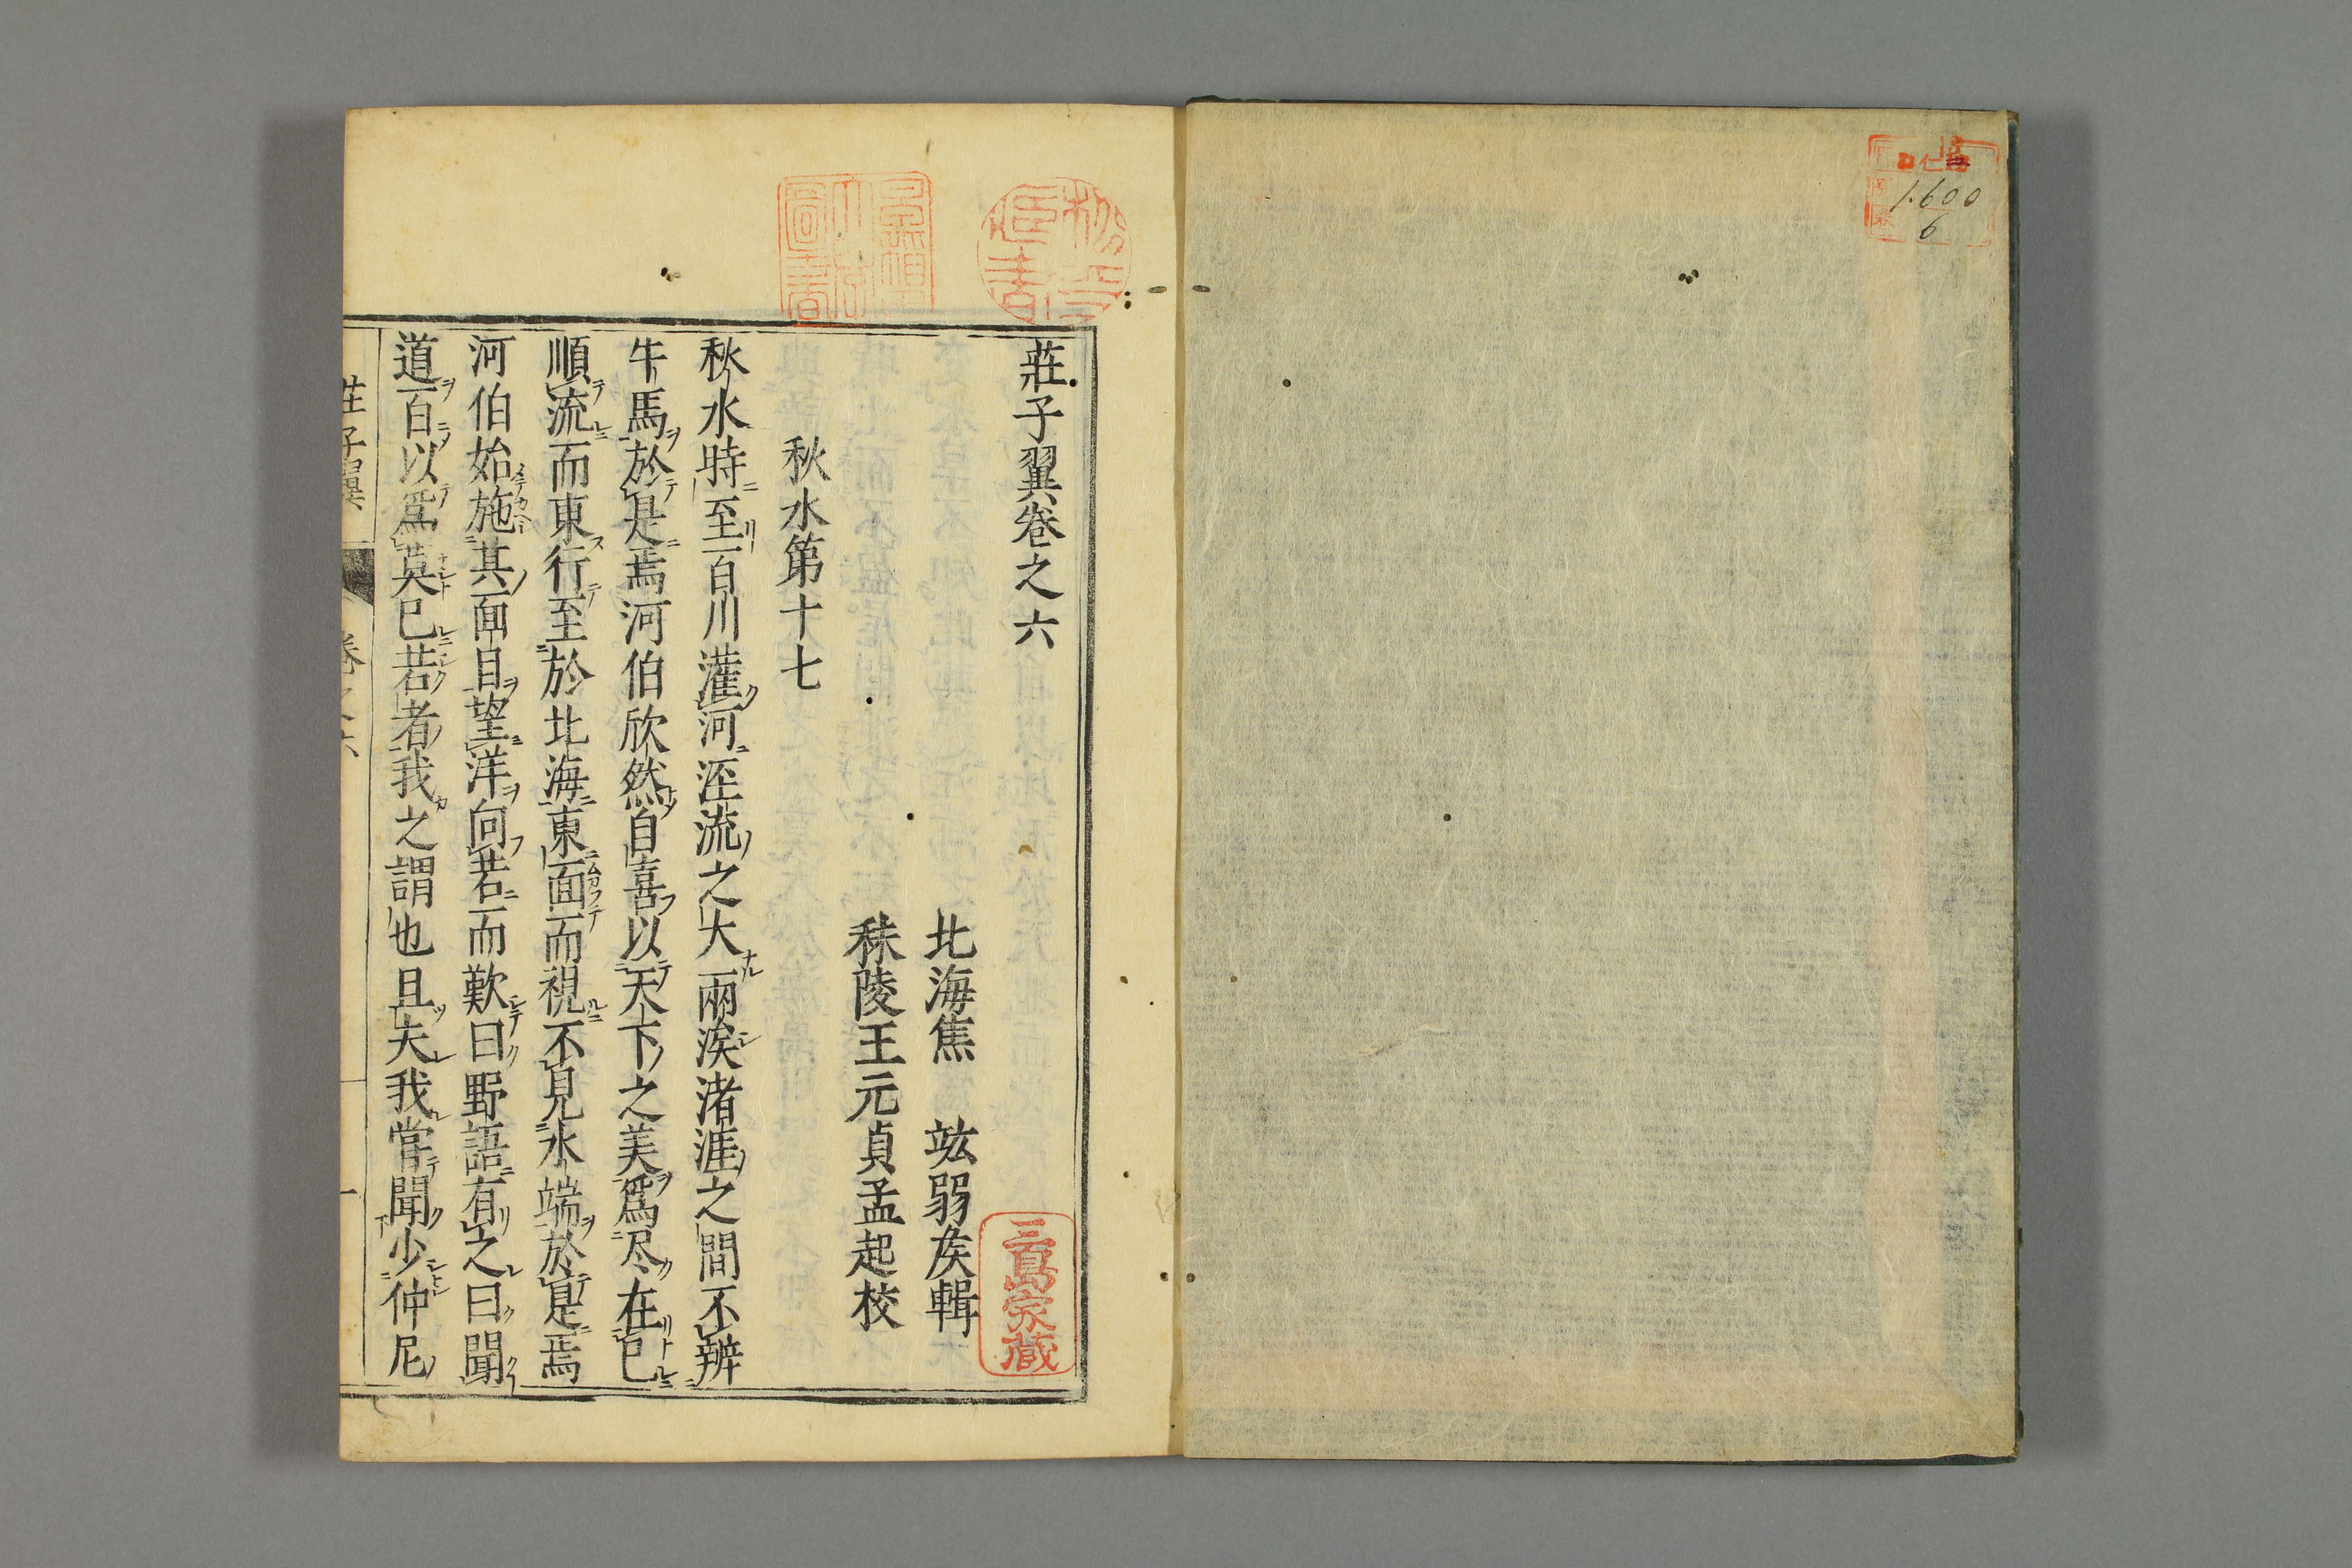 1.600
6
莊子翼卷之六
北海焦 竑弱矦輯
秣陵王元貞孟起校
秋水第十七
秋水時至百川灌河涇流之大兩涘渚涯之間不辨
牛馬於是焉河伯欣然自喜以天下之美爲尽在已
順流而東行至於北海東面而視不見水端於是焉
河伯始旋其面目望洋向若而歎曰野語有之曰聞
道百以爲莫已若者我之謂也且夫我嘗聞少仲尼
三島家藏
莊子翼 卷之六 一